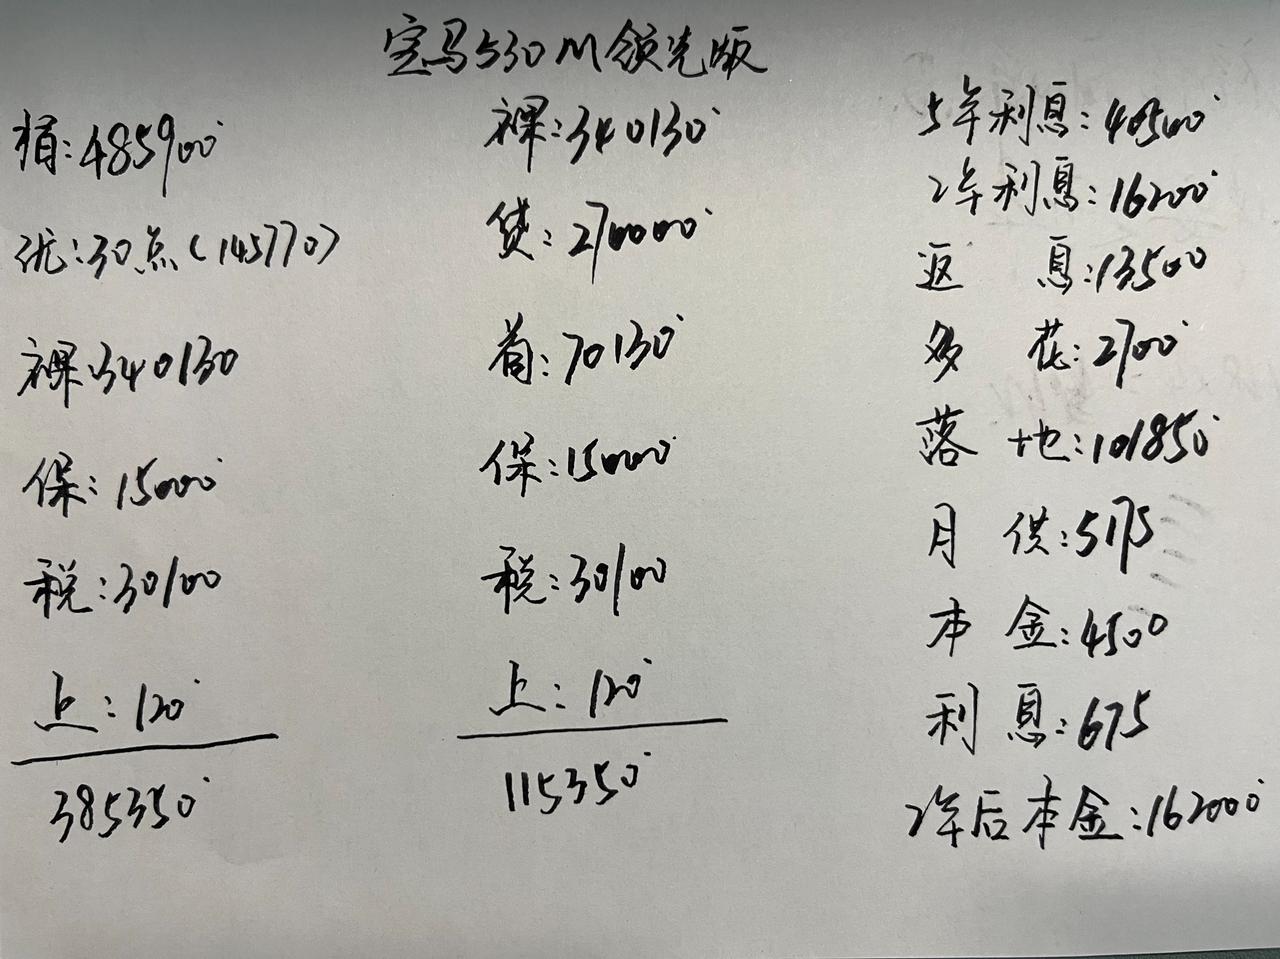 宝马530M领先版
指:485900
优:30点(145770)
裸:340130
保:15000
税:30100
上:120
385350
裸:340130
贷:270000
首:70130
保:15000
税:30100
上:120
115350
5年利息:40500
2年利息:16200
返 息:13500
多 花:2700
落 地:101850
月 供:5175
本 金:4500
利 息:675
2年后本金:162000